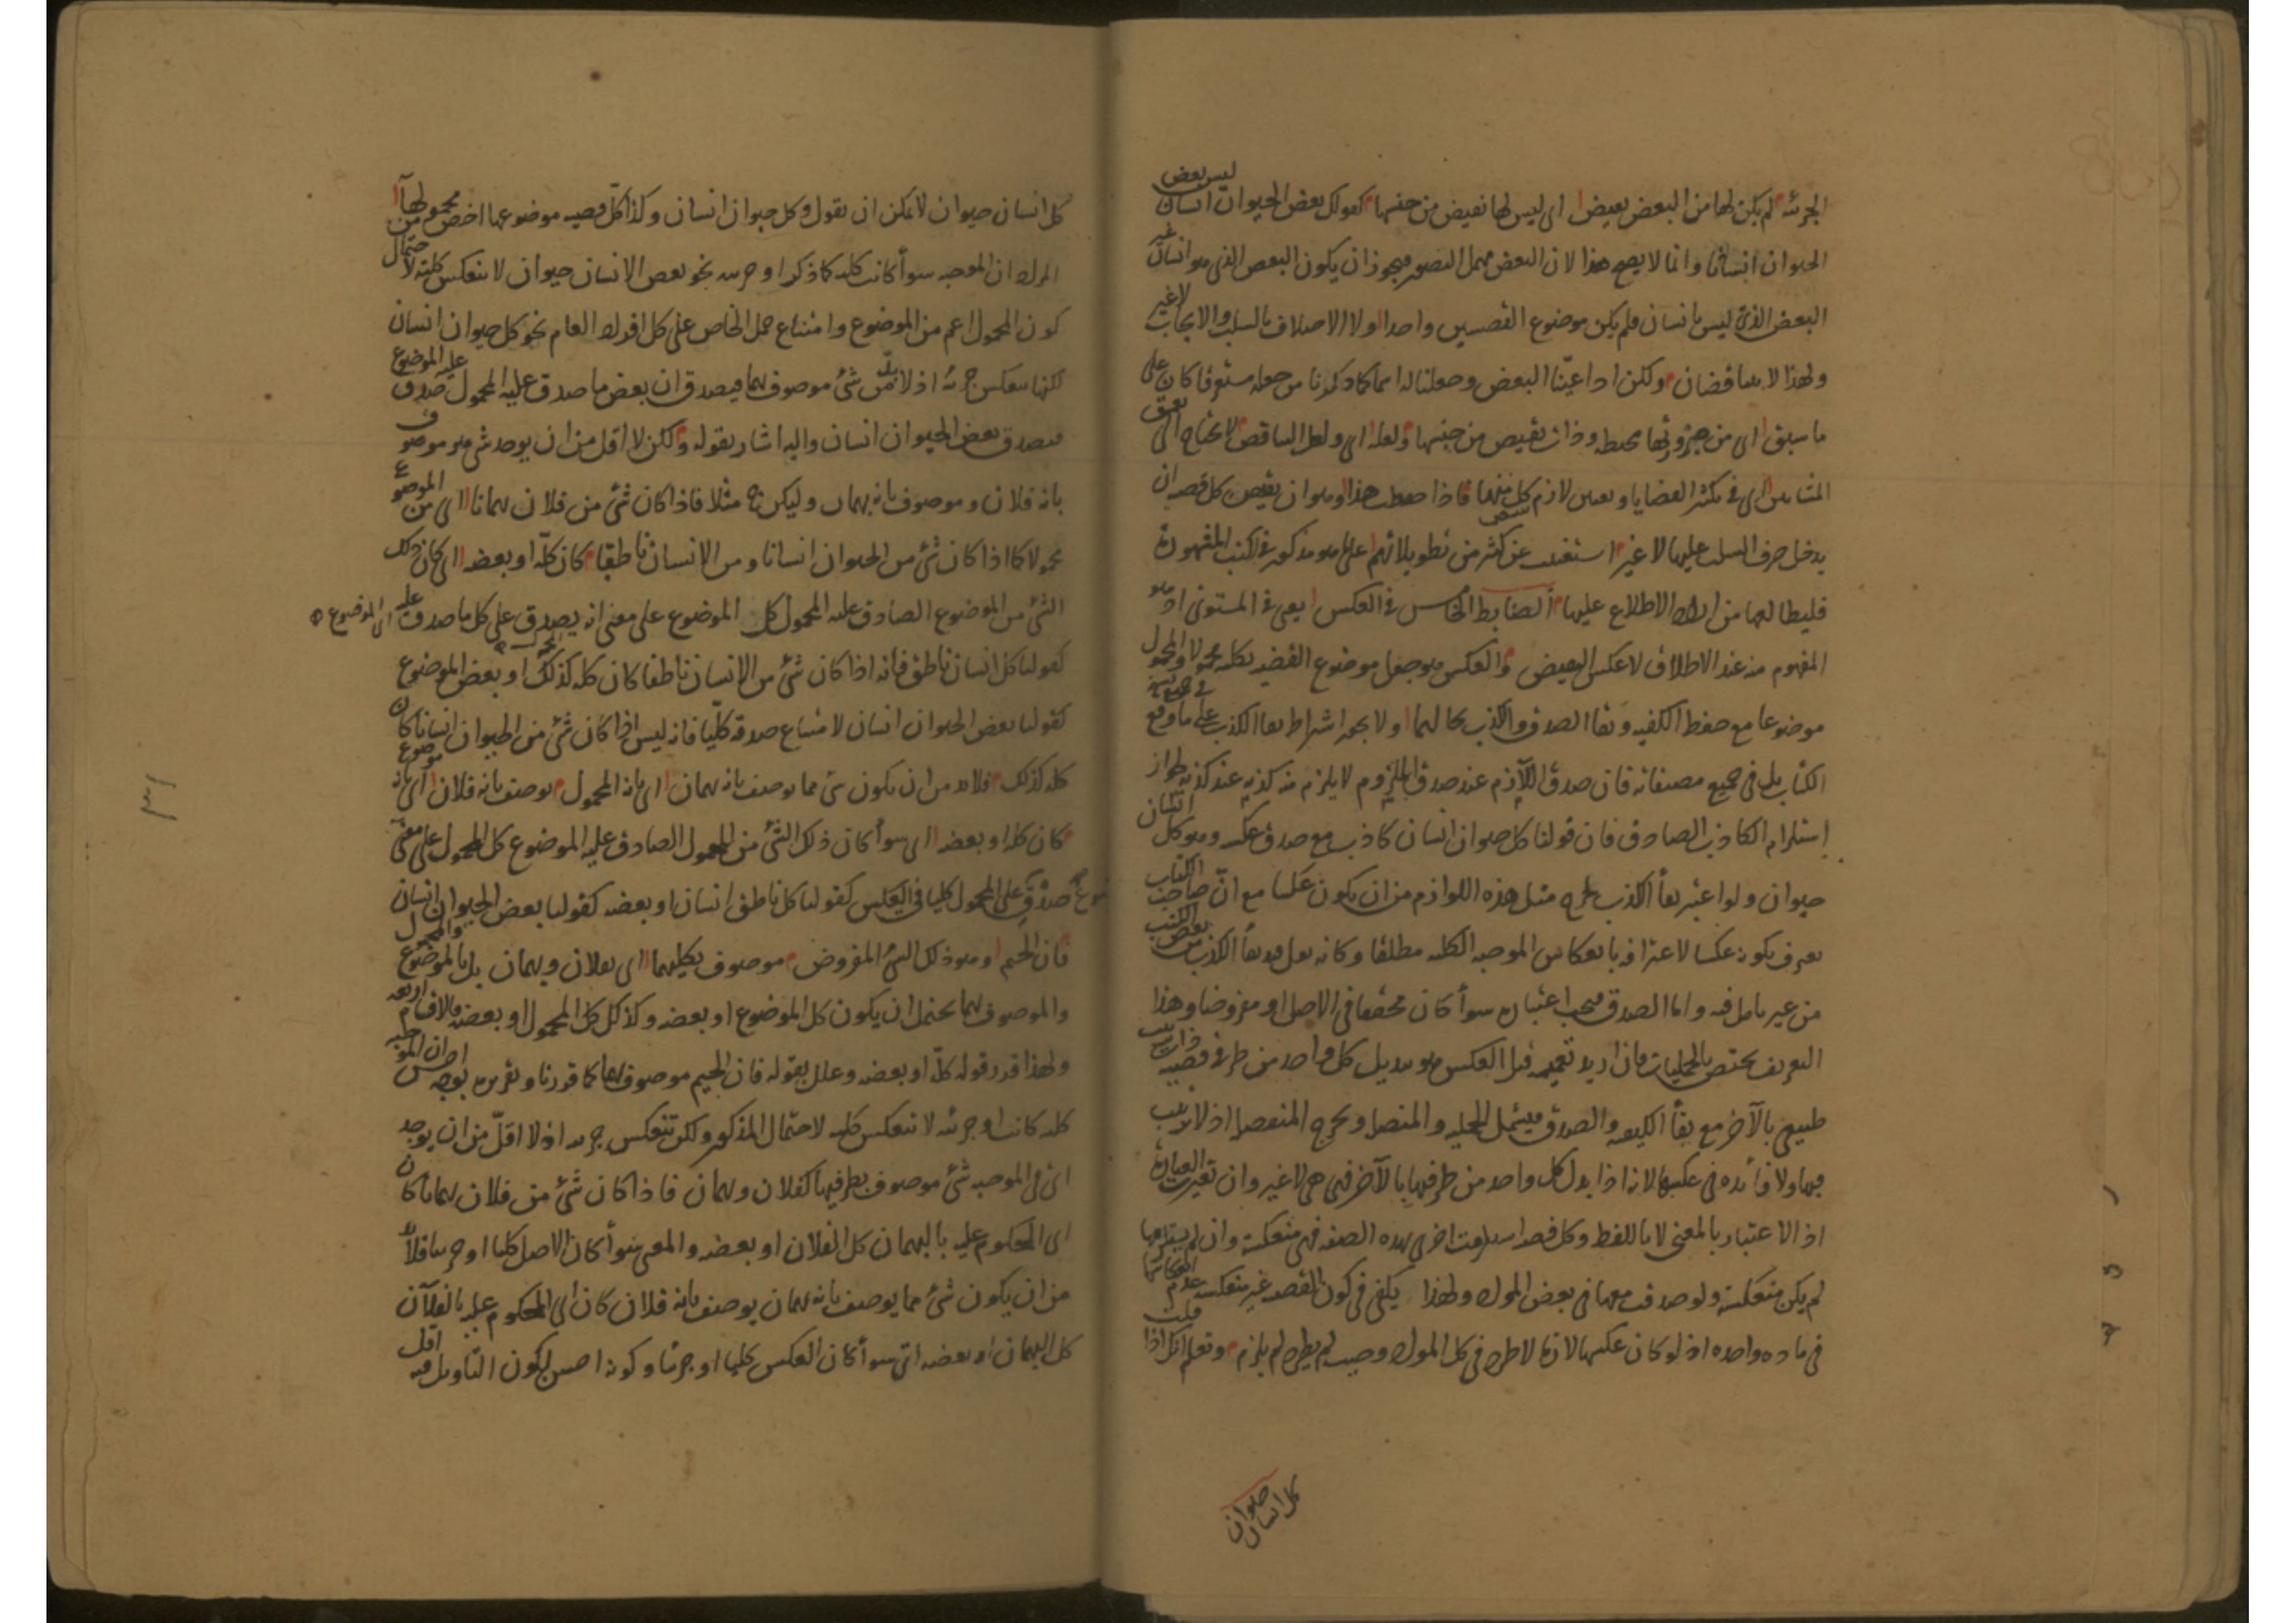 الجزئية لم يكن لها من البعض نقيض اى ليس لها نقيض من جنسها كقولك بعض الحيوان انسان ليس بعض
الحيوان انسانا وانما لا يصح هذا لان البعض مهمل التصور فيجوز ان يكون البعض الذى هو انسان غير
البعض الذى ليس بانسان فلم يكن موضوع القضيتين واحدا ولا الاختلاف بالسلب والايجاب لا غير
ولهذا لا يتناقضان ولكن اذا عينا البعض وجعلنا له اسما كما ذكرنا من جعله مستغرقا كان على
ما سبق اى من صيرورتها محيطة وذات نقيض من جنسها ولعله اى ولعل التناقض لا يحتاج الى تعمق
المشائين اى فى تكثر القضايا وتعيين لازم كل منهما فاذا حفظت هذا وهو ان نقيض كل قضية ان
يدخل حرف السلب عليها لا غير استغنيت عن كثير من تطويلاتهم على ما هو مذكور فى الكتب المشهورة
فليطالعها من اراد الاطلاع عليها الضابط الخامس فى العكس يعنى فى المستوى اذ هو
المفهوم منه عند الاطلاق لا عكس النقيض والعكس هو جعل موضوع القضية بكليته محمولا والمحمول
موضوعا مع حفظ الكيفية وبقاء الصدق والكذب بحالهما ولا يجوز اشتراط بقاء الكذب على ما وقع فى جميع نسخ
الكتاب بل فى جميع مصنفاته فان صدق اللازم عند صدق الملزوم لا يلزم منه كذبه عند كذبه لجواز
استلزام الكاذب الصادق فان قولنا كل حيوان انسان كاذب مع صدق عكسه وهو كل انسان
حيوان ولو اعتبر بقاء الكذب لخرج مثل هذه اللوازم من ان يكون عكسا مع ان صاحب الكتاب
يعرف بكونه عكسا لاعترافه بانعكاس الموجبة الكلية مطلقا وكانه نقل قيد بقاء الكذب من بعض الكتب
من غير تامل فيه واما الصدق فيجب اعتباره سواء كان محققا فى الاصل او مفروضا وهذا
التعريف يختص بالحمليات فان اريد تعميمه قيل العكس هو تبديل كل واحد من طرفى قضية ذات ترتيب
طبيعى بالآخر مع بقاء الكيفية والصدق فيشمل الحملية والمتصلة ويخرج المنفصلة اذ لا ترتيب
فيها ولا فائدة فى عكسها لانه اذا بدل كل واحد من طرفيها بالآخر فهى هى لا غير وان تغيرت العبارة
اذ الاعتبار بالمعنى لا باللفظ وكل قضية استلزمت اخرى بهذه الصفة فهى منعكسة وان لم يستلزمها
لم يكن منعكسة ولو صدقت معها فى بعض المواد ولهذا يكفى فى كون القضية غير منعكسة عدم انعكاسها
فى مادة واحدة اذ لو كان عكسها لازما لاطرد فى كل المواد وحيث لم يطرد لم يلزم وتعلم انك اذا قلت
كل انسان حيوان
كل انسان حيوان لا يمكن ان تقول وكل حيوان انسان وكذا كل قضية موضوعها اخص من محمولها
المراد ان الموجبة سواء كانت كلية كما ذكر او جزئية نحو بعض الانسان حيوان لا تنعكس كلية لاحتمال
كون المحمول اعم من الموضوع وامتناع حمل الخاص على كل افراد العام نحو كل حيوان انسان
لكنها تنعكس جزئية اذ لا بد من شئ موصوف بهما فيصدق ان بعض ما صدق عليه المحمول صدق عليه الموضوع
فيصدق بعض الحيوان انسان واليه اشار بقوله ولكن لا اقل من ان يوجد شئ هو موصوف
بانه فلان وموصوف بانه بهمان وليكن ج مثلا فاذا كان شئ من فلان بهمانا اى من الموضوع
محمولا كما اذا كان شئ من الحيوان انسانا ومن الانسان ناطقا كان كله او بعضه اى كان ذلك
الشئ من الموضوع الصادق عليه المحمول كل الموضوع على معنى انه يصدق على كل ما صدق عليه اى الموضوع
كقولنا كل انسان ناطق فانه اذا كان شئ من الانسان ناطقا كان كله كذلك او بعض الموضوع
كقولنا بعض الحيوان انسان لامتناع صدقه كليا فانه ليس اذا كان شئ من الحيوان انسانا كان
كله كذلك فلا بد من ان يكون شئ مما يوصف بانه بهمان اى بانه المحمول يوصف بانه فلان اى بانه موضوع
كان كله او بعضه اى سواء كان ذلك الشئ من المحمول الصادق عليه الموضوع كل المحمول على معنى
صدق على المحمول كليا فى العكس كقولنا كل ناطق انسان او بعضه كقولنا بعض الحيوان انسان
فان الجيم وهو ذلك الشئ المفروض موصوف بكليهما اى بفلان وبهمان بل بالموضوع والمحمول
والموصوف بهما يحتمل ان يكون كل الموضوع او بعضه وكذلك كل المحمول او بعضه فالاقسام اربعة
ولهذا قدر قوله كله او بعضه وعلل بقوله فان الجيم موصوف بهما كما قررنا وتقريره بوجه اخر ان الموجبة
كلية كانت او جزئية لا تنعكس كلية لاحتمال المذكور ولكن تنعكس جزئية اذ لا اقل من ان يوجد
اى فى الموجبة شئ موصوف بطرفيها كفلان وبهمان فاذا كان شئ من فلان بهمانا كان
اى المحكوم عليه بالبهمان كل الفلان او بعضه والمعنى سواء كان الاصل كليا او جزئيا فلا بد
من ان يكون شئ مما يوصف بانه بهمان يوصف بانه فلان كان اى المحكوم عليه بالفلان
كل البهمان او بعضه اى سواء كان العكس كليا او جزئيا وكونه احسن لكون التاويل فيه اقل